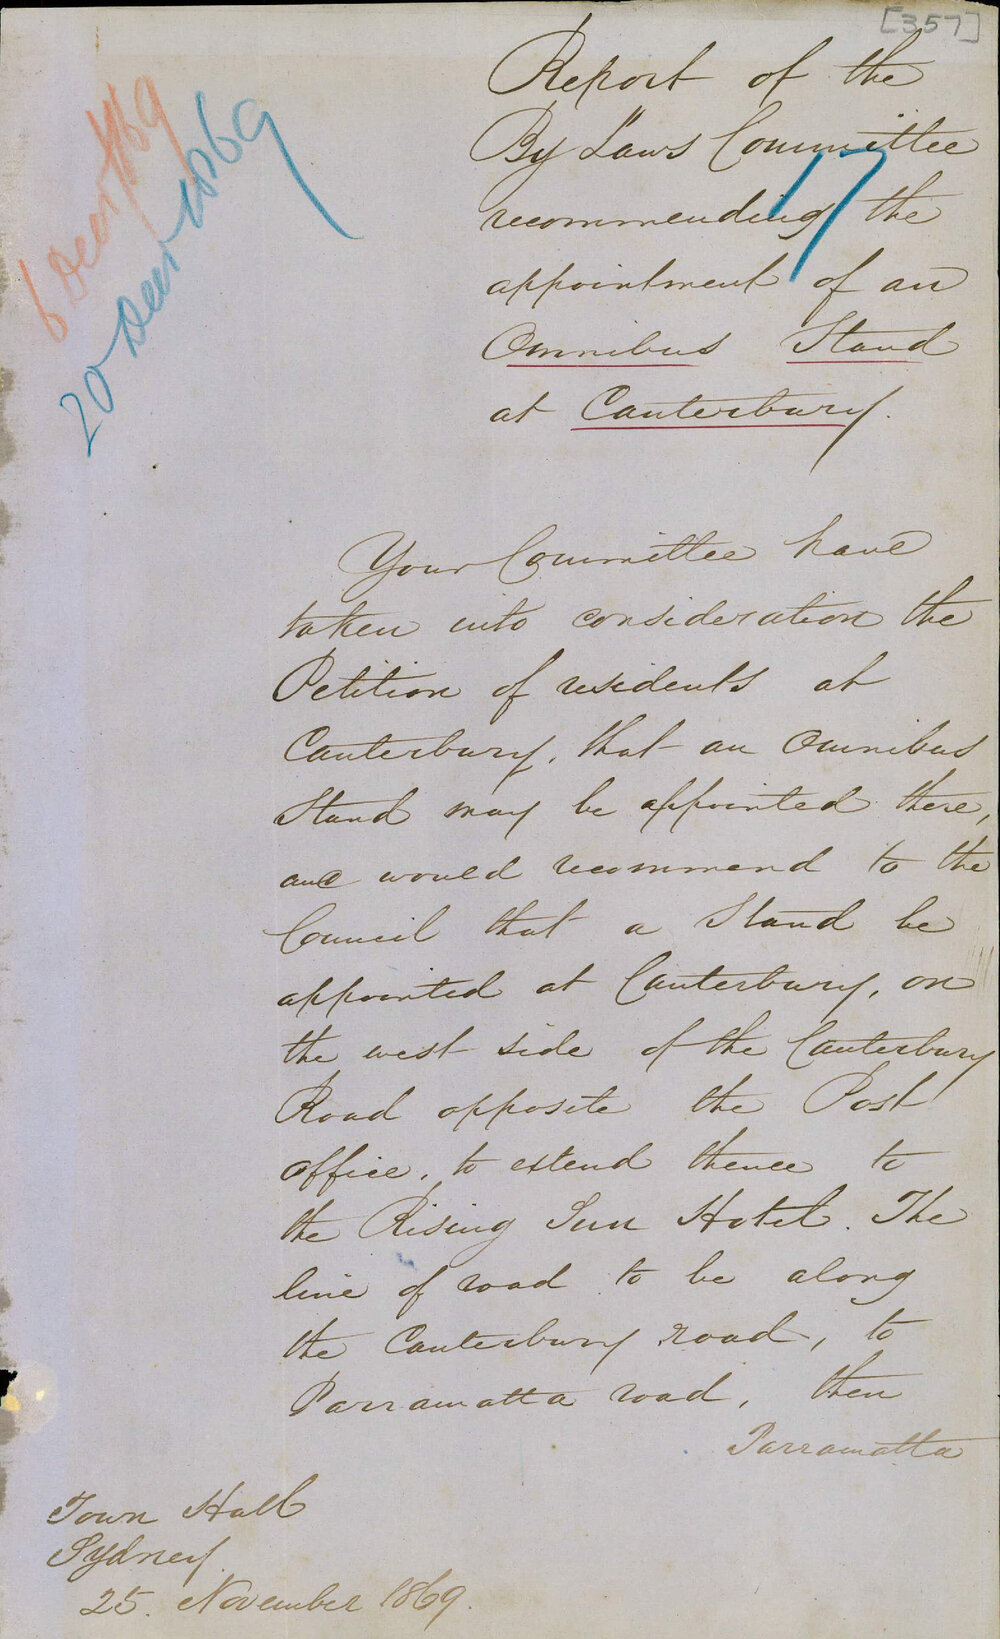 [357]
6 Decr /69
20 Decr 1869
17
Report of the
By Laws Committee
recommending the
appointment of an
Omnibus Stand
at Canterbury.
Your Committee have
taken into consideration the
Petition of residents at
Canterbury, that an Omnibus
Stand may be appointed there,
and would recommend to the
Council that a Stand be
appointed at Canterbury, on
the west side of the Canterbury
Road opposite the Post
office, to extend thence to
the Rising Sun Hotel. The
line of road to be along
the Canterbury road, to
Parramatta road, then
Parramatta
Town Hall
Sydney
25. November 1869.